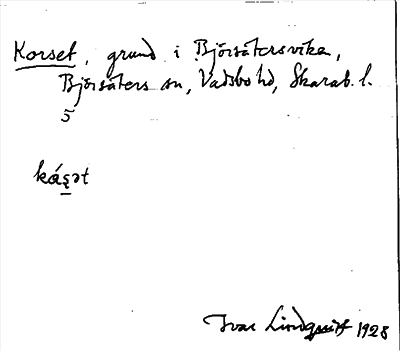 Korset, grund i Björsätersviken,
Björsäters sn, Vadsbo hd, Skarab. l.
5
kás̠ət
Ivar Lindquist 1928